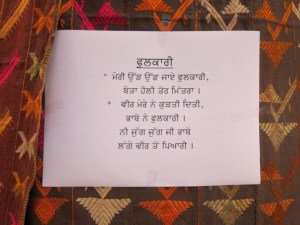 ਫੁਲਕਾਰੀ
* ਮੇਰੀ ਉੱਡ ਉੱਡ ਜਾਏ ਫੁਲਕਾਰੀ,
ਬੰਤਾ ਹੌਲੀ ਤੋਰ ਮਿੱਤਰਾ ।
* ਵੀਰ ਮੇਰੇ ਨੇ ਕੁੜਤੀ ਦਿੱਤੀ,
ਭਾਬੋ ਨੇ ਫੁਲਕਾਰੀ ।
ਨੀ ਜੁੱਗ ਜੁੱਗ ਜੀ ਭਾਬੋ
ਲੱਗੇ ਵੀਰ ਤੋਂ ਪਿਆਰੀ ।